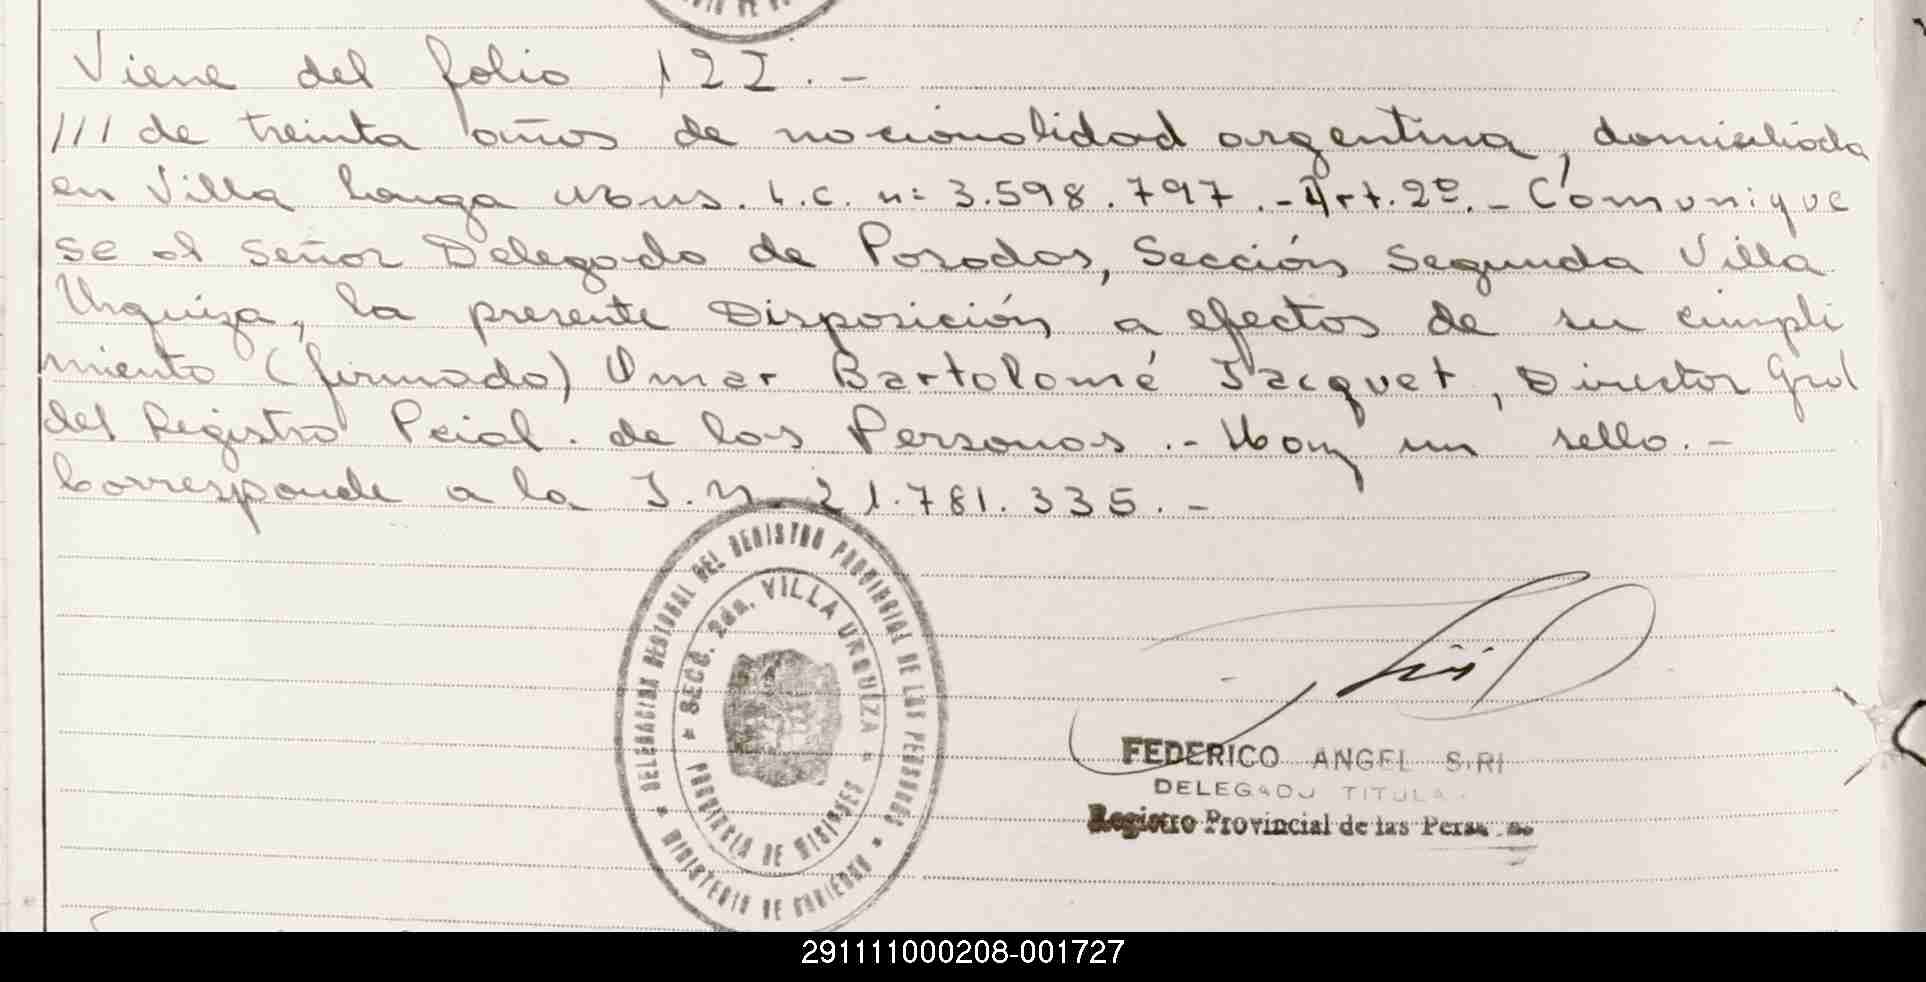 Viene del folio 122.-
/// de treinta años de nacionalidad argentina, domiciliada
en Villa Longa Mons. L.C. n: 3.598.797.- Art. 2º.- Comunique
se al Señor Delegado de Posadas, Sección Segunda Villa
Urquiza, la presente Disposición a efectos de su cumpli
miento (firmado) Omar Bartolomé Jacquet, Director Gral
del Registro Pcial. de las Personas.- Hay un sello.-
Corresponde a la I.N 21.781.335.-
DELEGACION REGIONAL DEL REGISTRO PROVINCIAL DE LAS PERSONAS
* MINISTERIO DE GOBIERNO *
* SECC. 2da. VILLA URQUIZA *
PROVINCIA DE MISIONES
FEDERICO ANGEL SIRI
DELEGADO TITULAR
Registro Provincial de las Personas
291111000208-001727